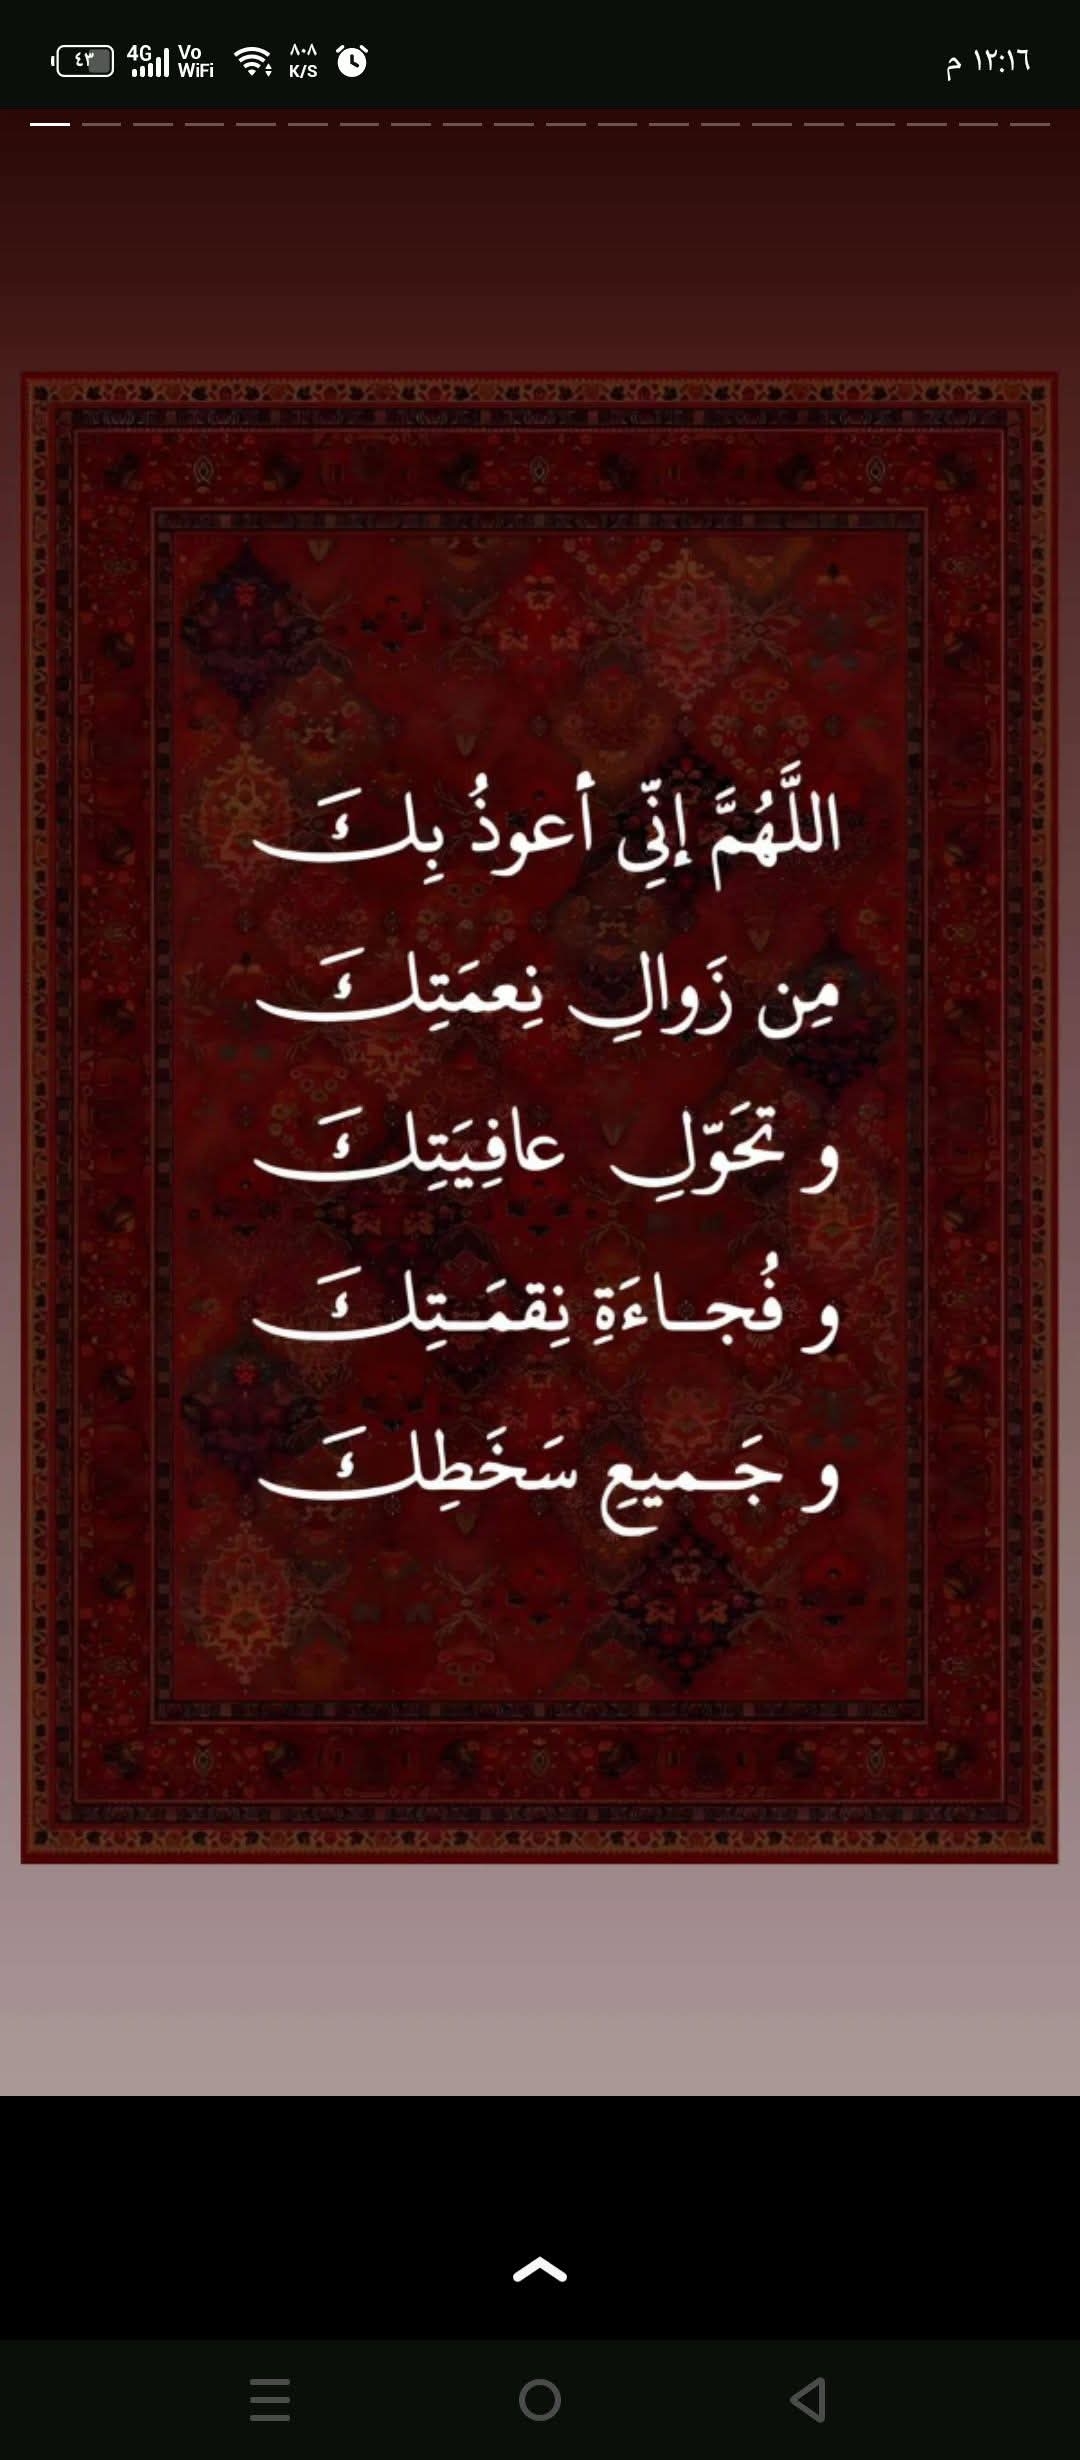 ١٢:١٦ م
٤٣ 4G Vo WiFi ٨٠٨ K/S
اللَّهُمَّ إنِّي أعوذُ بِكَ
مِن زَوالِ نِعمَتِكَ
و تَحَوّلِ عافِيَتِكَ
و فُجاءَةِ نِقمَتِكَ
و جَميعِ سَخَطِكَ